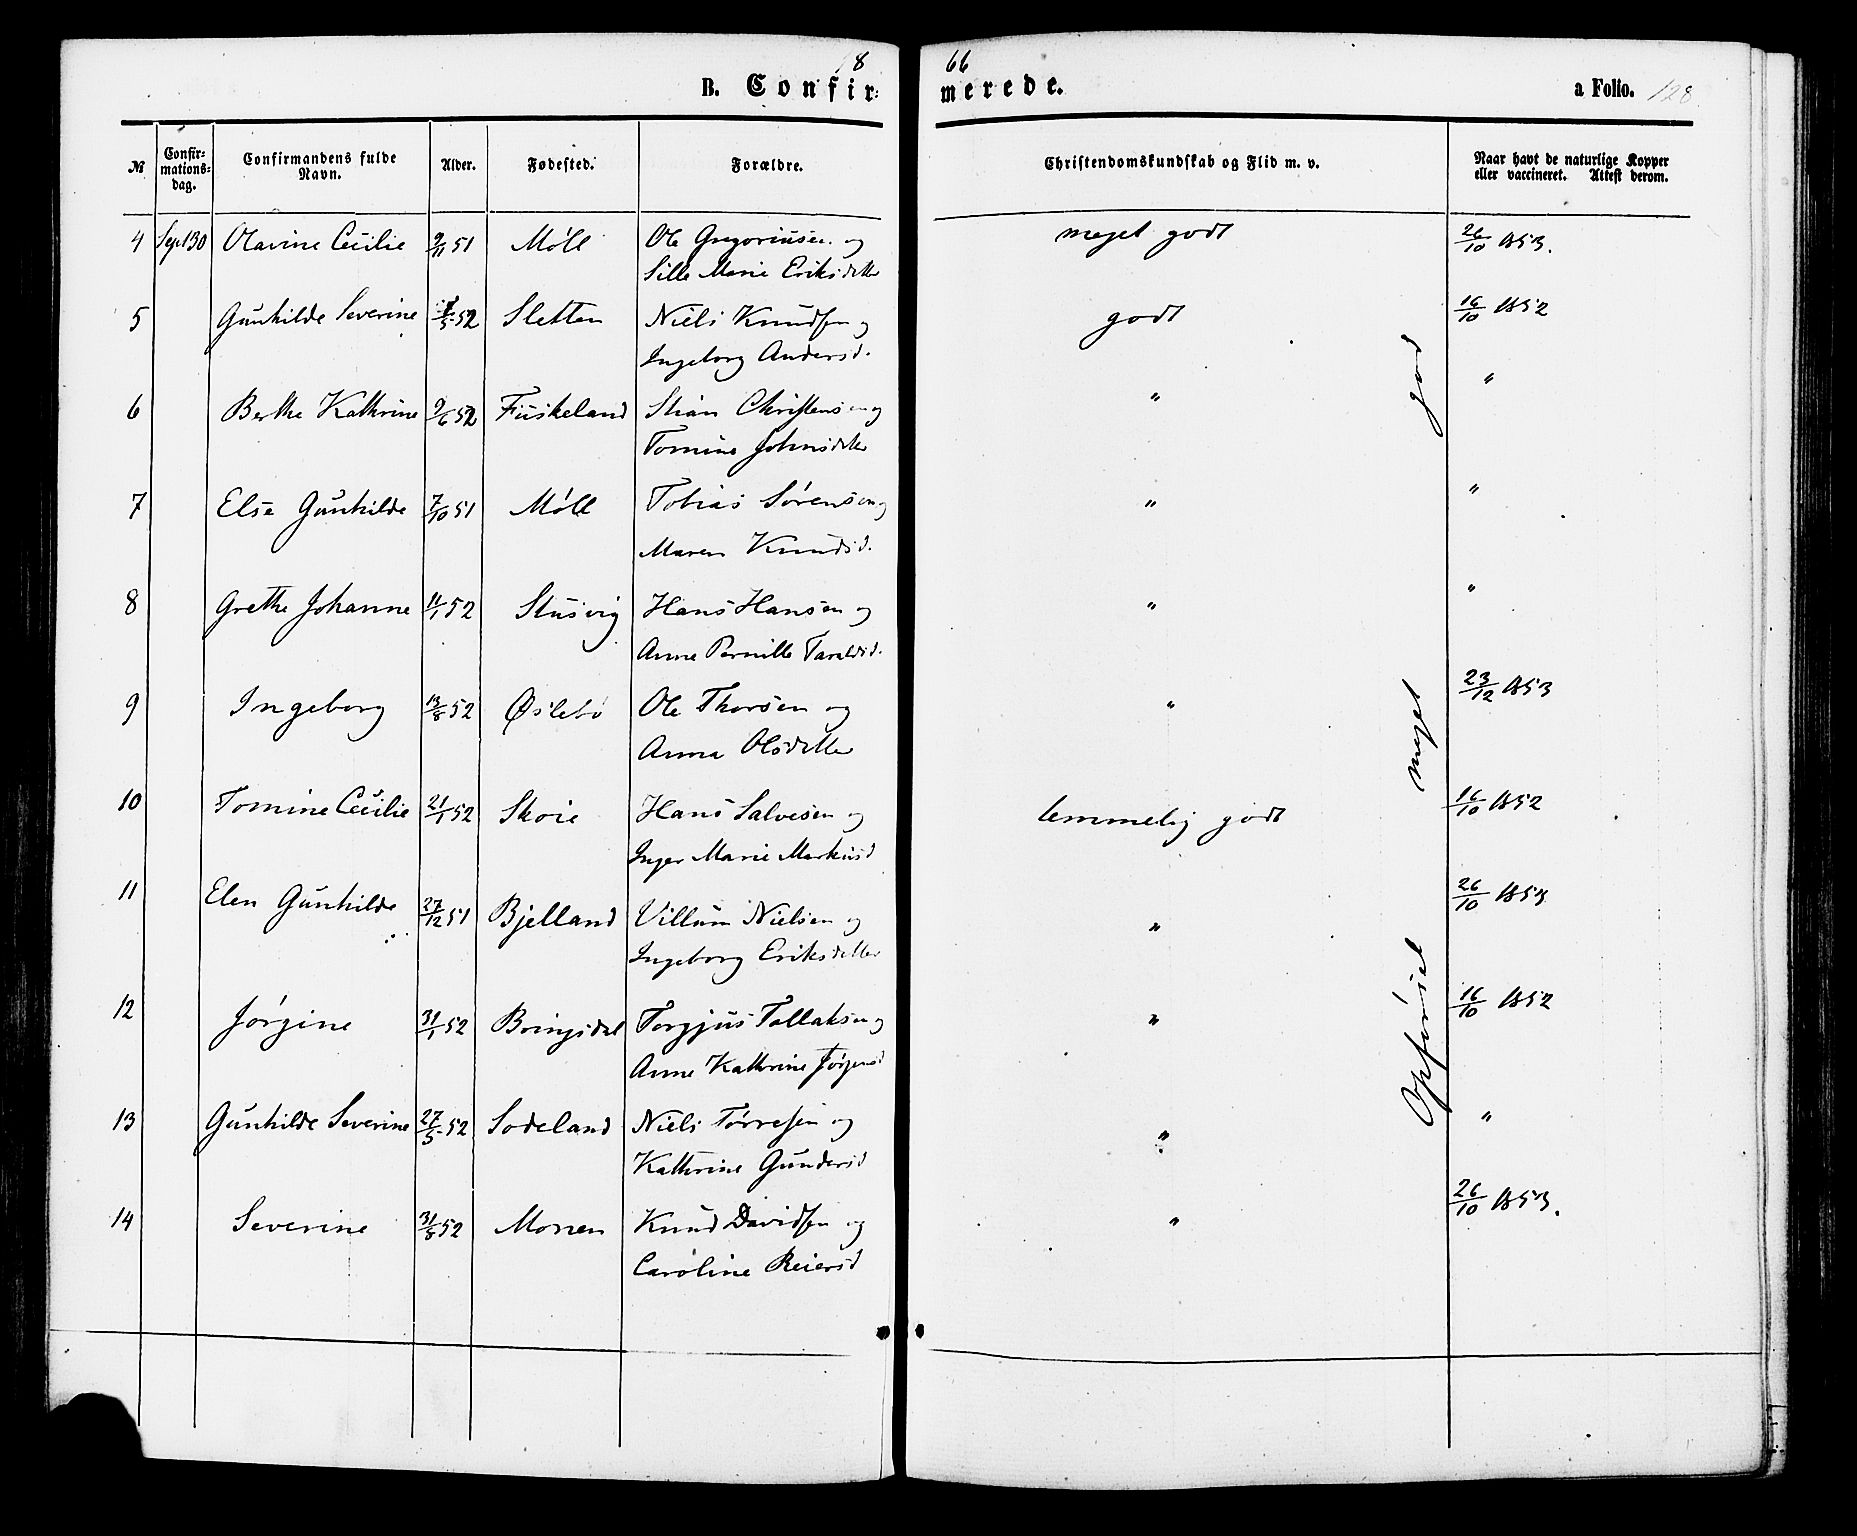 18 66
B. Confirmerede. a Folio. 128.
№ Confirmationsdag. Confirmandens fulde Navn. Alder. Fødested. Forældre. Christendomskundskab og Flid m. v. Naar havt de naturlige Kopper eller vaccineret. Attest derom.
4 Sept 30 Olavine Cecilie 9/11 51 Møll Ole Gregoriusen og meget godt 26/10 1853.
Sille Marie Eriksdatter
5 Gunhilde Severine /5 52 Sletten Niels Knudsen og godt 16/10 1852
Ingeborg Andersd.
6 Berthe Kathrine 9/6 52 Fuskeland Stian Christensen og " "
Tomine Johnsdatter
7 Else Gunhilde 7/10 51 Møll Tobias Sørensen og " "
Maren Knudsd.
8 Grethe Johanne 11/1 52 Stusvig Hans Hansen og " "
Anne Pernille Taraldsd.
9 Ingeborg 13/8 52 Øslebø Ole Thorsen og " 23/12 1853
Anna Olsdatter
10 Tomine Cecilie 21/1 52 Skoie Hans Salvesen og temmelig godt 16/10 1852
Inger Marie Markusd
11 Elen Gunhilde 27/12 51 Bjelland Villum Nielsen og " 26/10 1853
Ingeborg Eriksdatter
12 Jørgine 31/1 52 Bringsdal Torgjus Tollaksen og " 16/10 1852
Anne Kathrine Jørgensd
13 Gunhilde Severine 27/5 52 Sodeland Niels Tørresen og " "
Kathrine Gundersd
14 Severine 31/8 52 Monen Knud Davidsen og " 26/10 1853.
Caroline Reiersd
Opførsel meget god